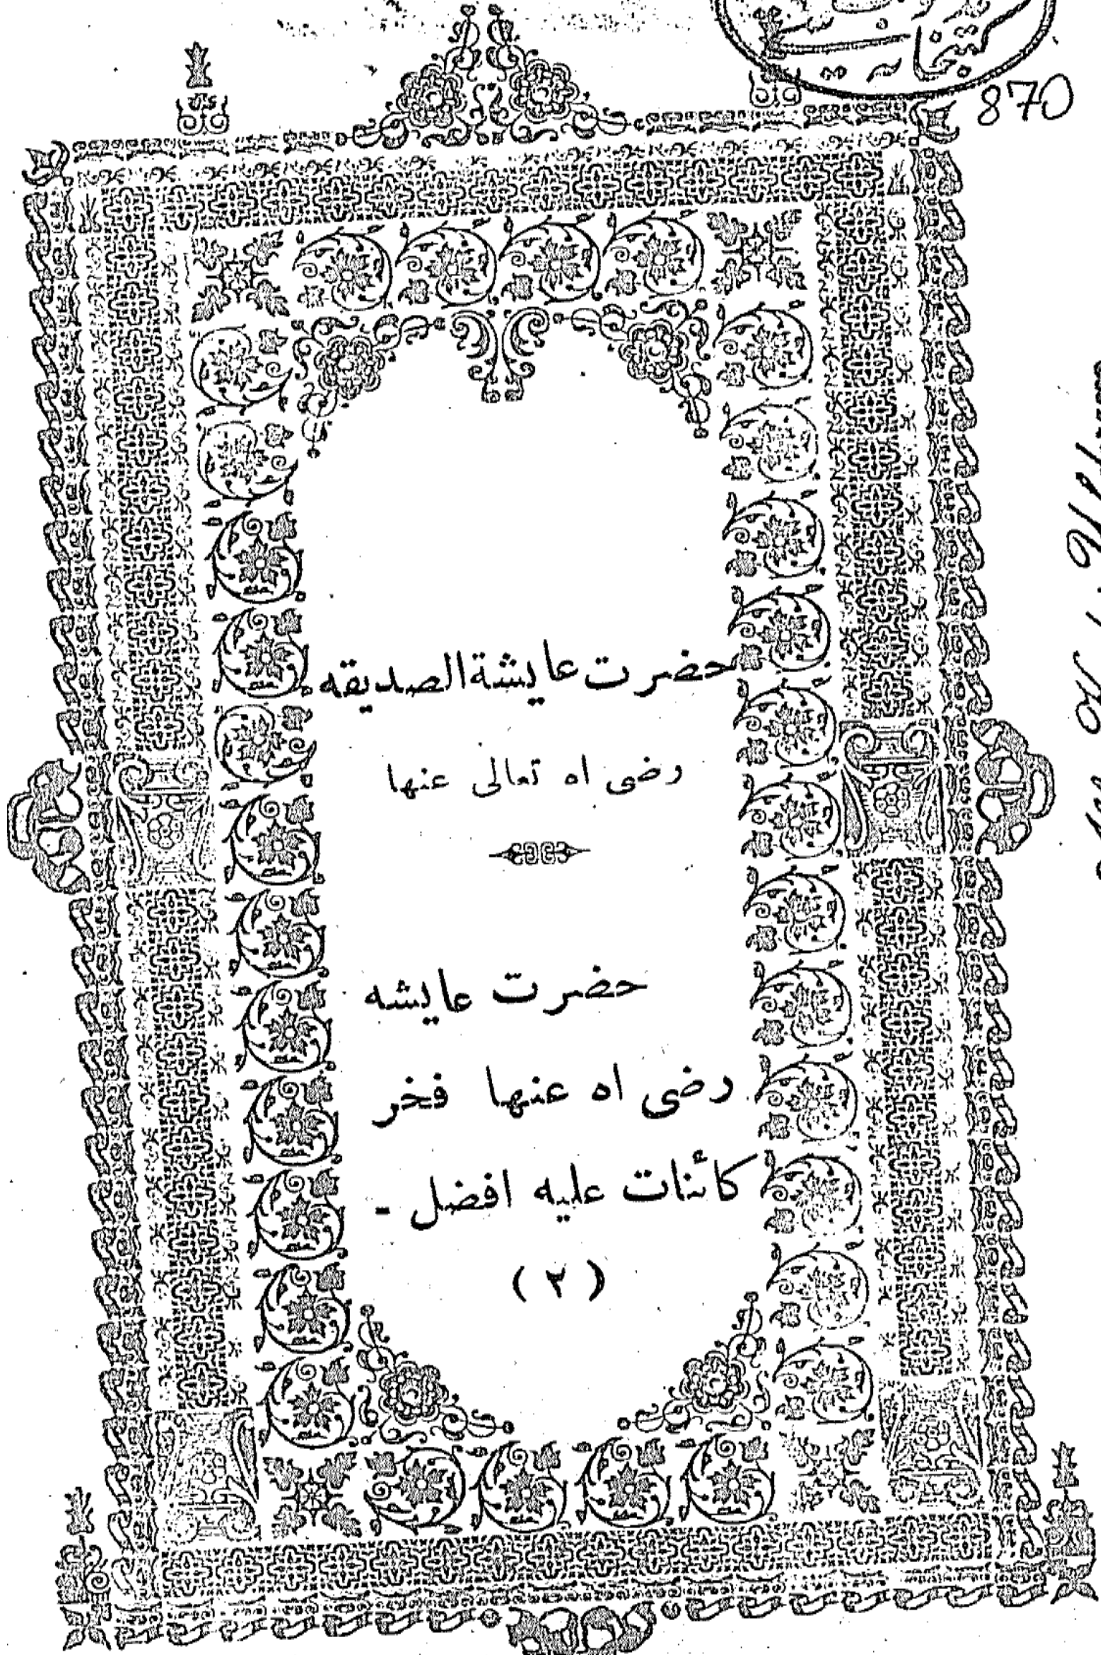 870
حضرت عايشة الصديقه
رضى اه تعالى عنها
حضرت عايشه
رضى اه عنها فخر
كائنات عليه افضل -
( ٢ )